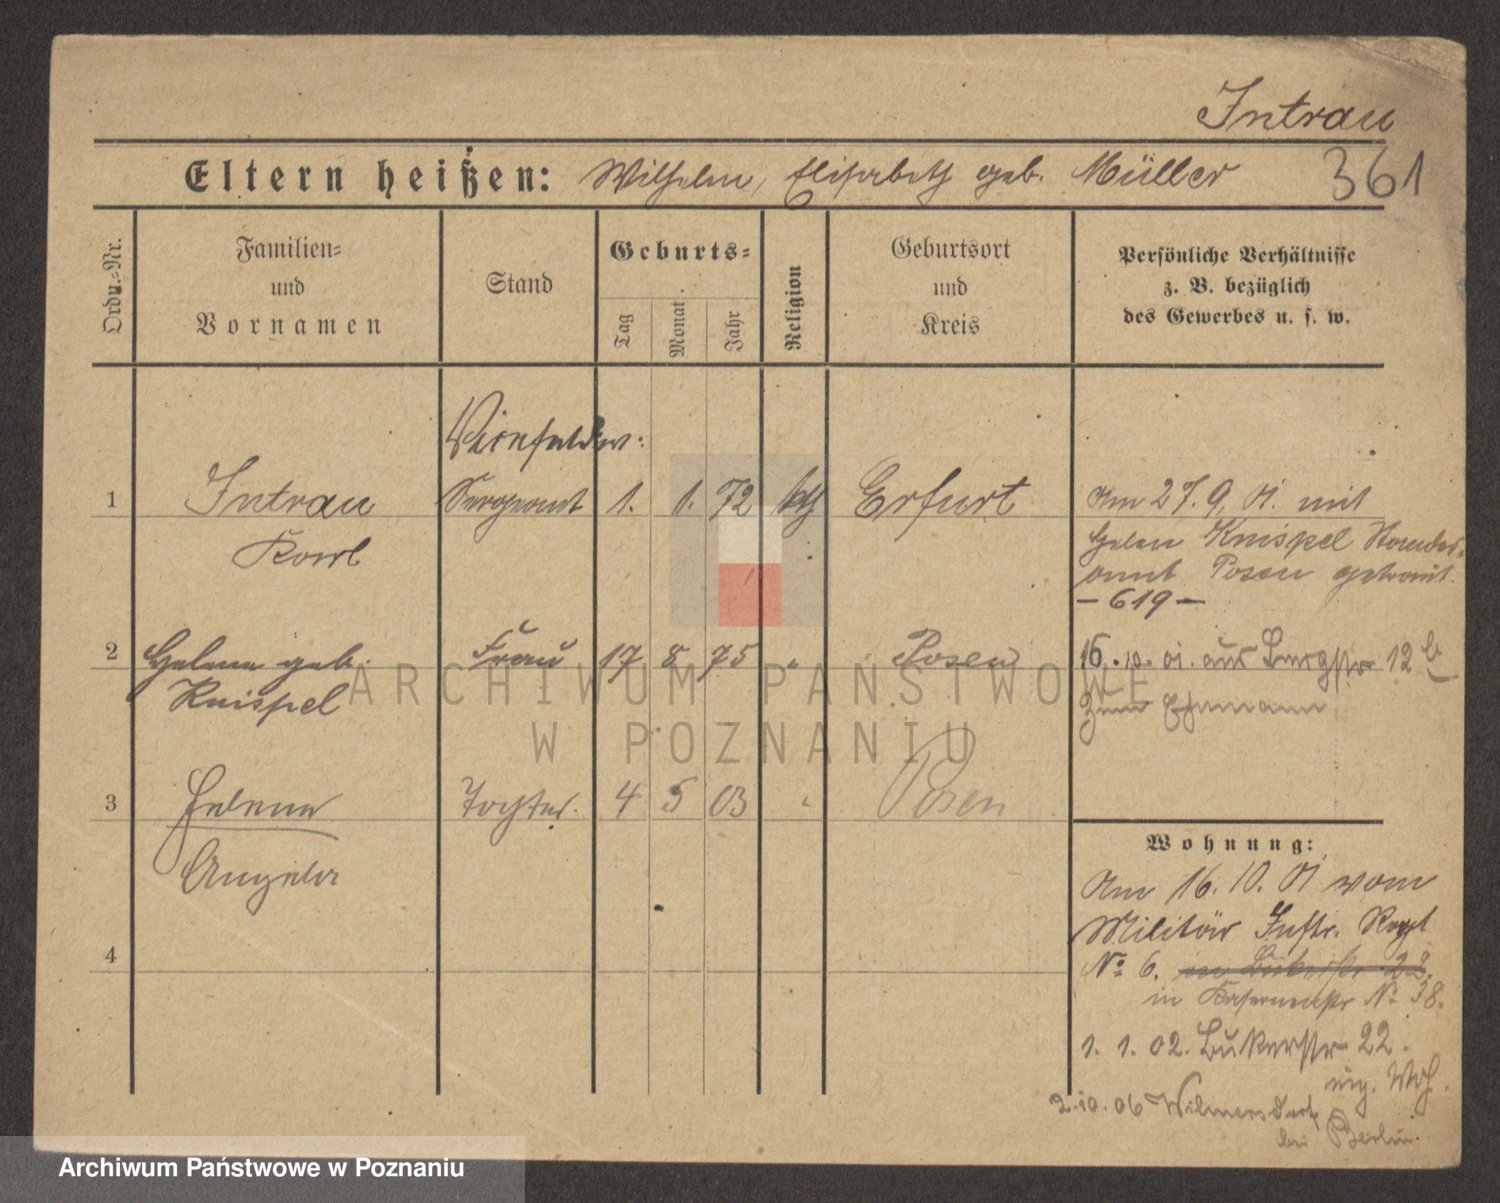 Intrau
Eltern heißen: Wilhelm, Elisabeth geb. Müller 361
Ordn.-Nr.
Familien-
und
Vornamen
Stand
Geburts-
Tag
Monat
Jahr
Religion
Geburtsort
und
Kreis
Persönliche Verhältnisse
z. B. bezüglich
des Gewerbes u. s. w.
1 Intrau Sergeant 1. 1. 72 kth Erfurt
Karl
Am 27. 9. 01. mit
Helene Knispel Standes-
amt Posen getraut.
- 619 -
2 Helene geb. Frau 17 8 75 " Posen
Knispel
16. 10. 01. aus Bergstr 12 b
Zum Ehemann
3 Helene Tochter. 4 5 03 " Posen
Angela
4
Wohnung:
Am 16. 10. 01 vom
Militär Inftr. Regt
No 6.
in Kasernenstr No 38.
1. 1. 02. Bukerstr 22.
eig. Wh.
2.10.06 Wilmersdorf
bei Berlin.
ARCHIWUM PAŃSTWOWE
W POZNANIU
Archiwum Państwowe w Poznaniu